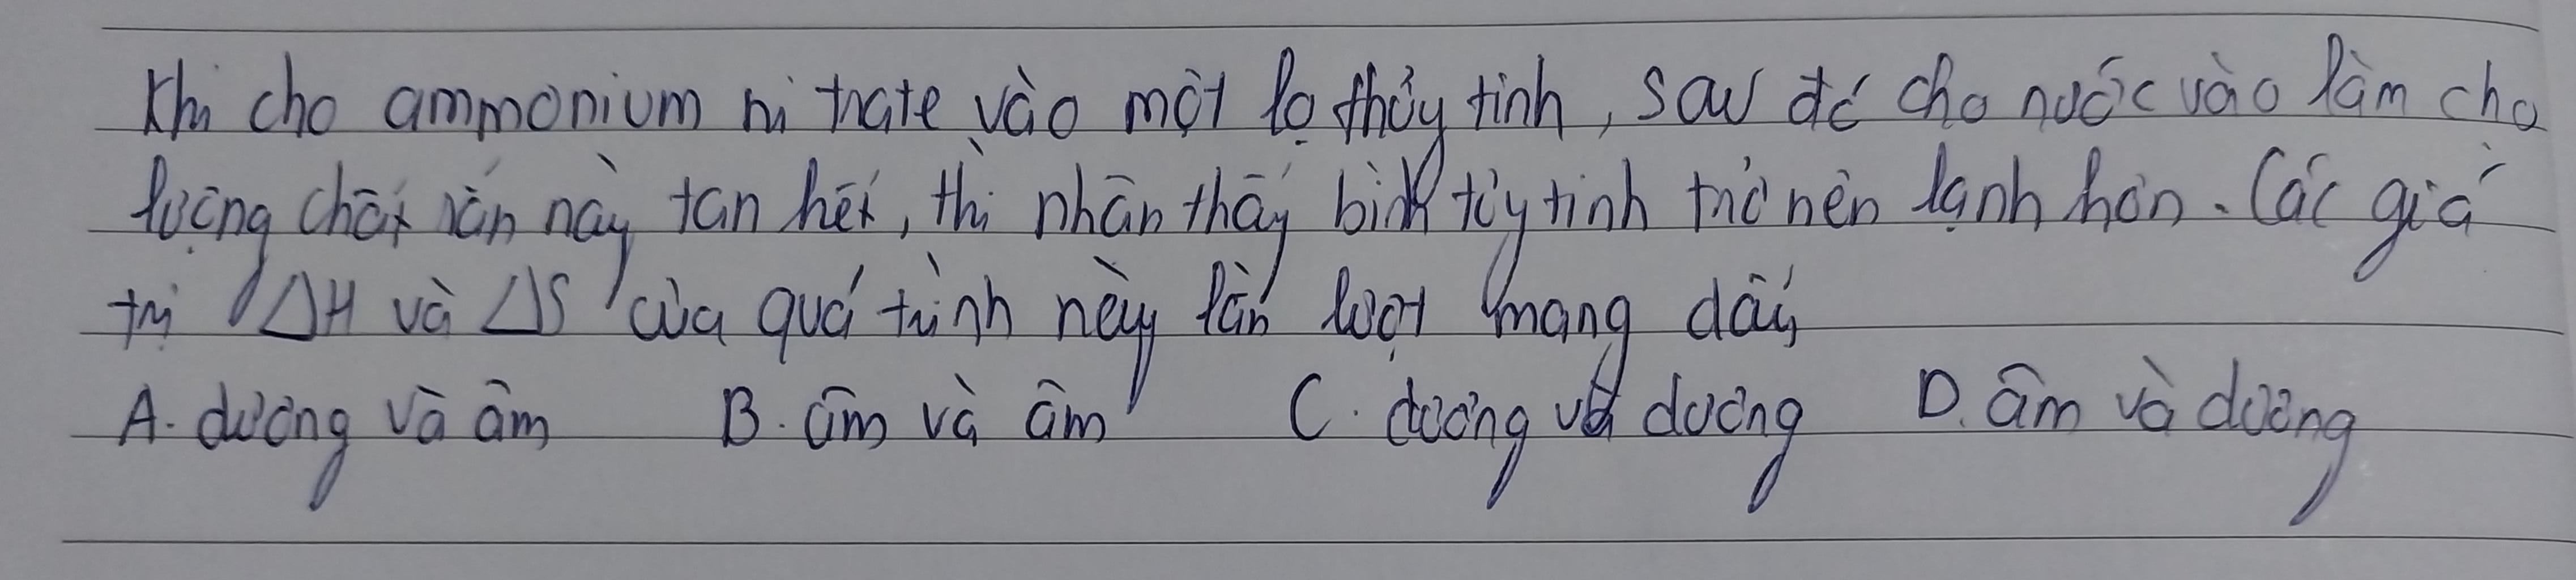 Khi cho ammonium nitrate vào một lọ thủy tinh, sau đó cho nước vào làm cho
lượng chất rắn này tan hết, thì nhận thấy bình tủy tinh trở nên lạnh hơn. Các giá
trị ΔH và ΔS của quá trình này lần lượt mang dấu
A. dương và âm B. âm và âm C. dương và dương D. âm và dương